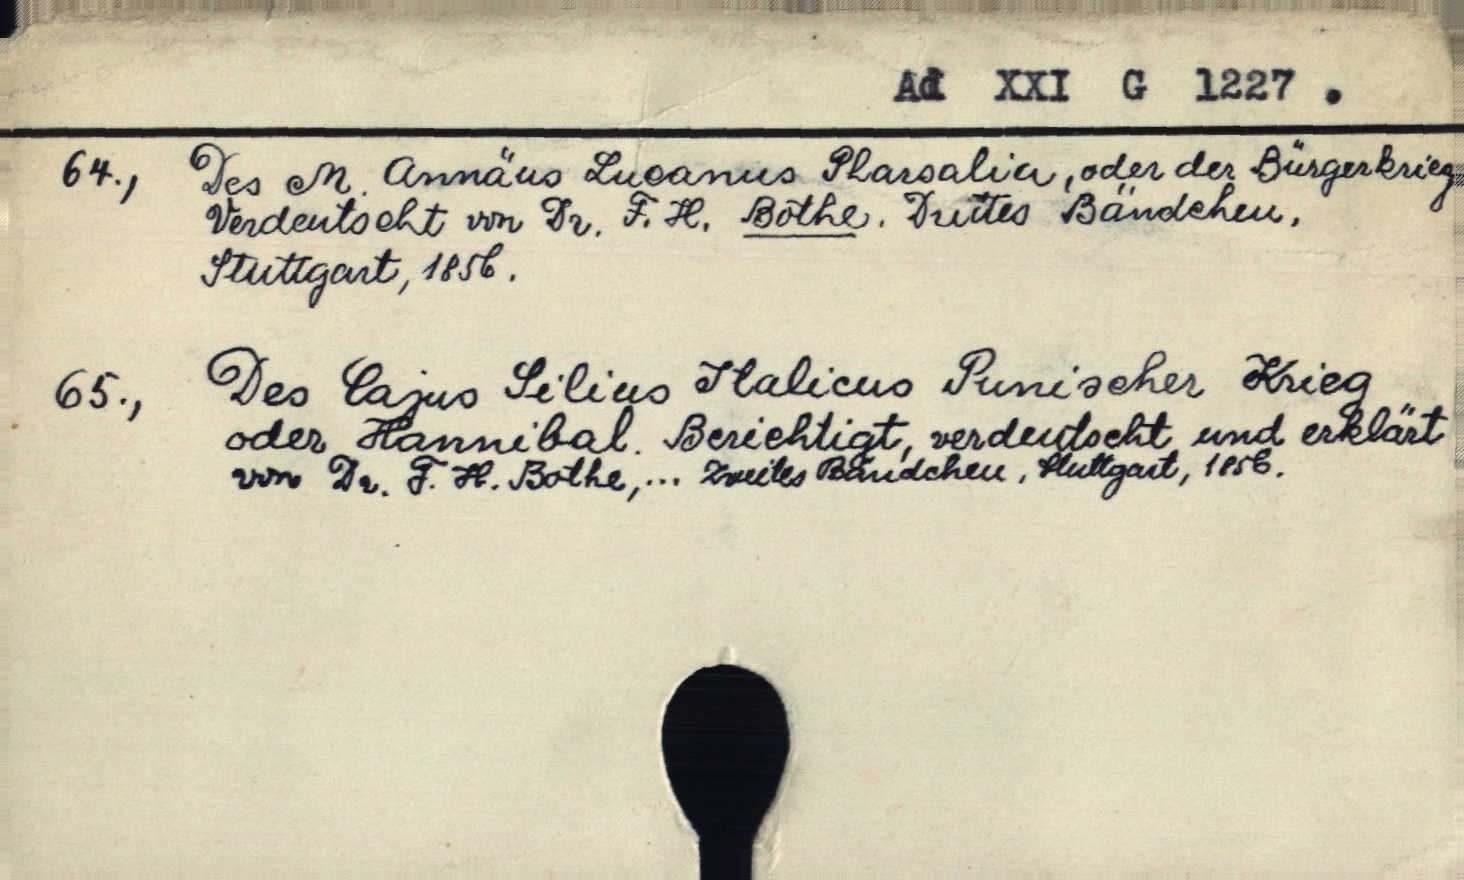 Ad XXI G 1227.
64., Des M. Annäus Lucanus Pharsalia, oder der Bürgerkrieg
Verdeutscht von Dr. F. H. Bothe. Drittes Bändchen.
Stuttgart, 1856.
65., Des Cajus Silius Italicus Punischer Krieg
oder Hannibal. Berichtigt, verdeutscht und erklärt
von Dr. F. H. Bothe,... Zweites Bändchen, Stuttgart, 1856.